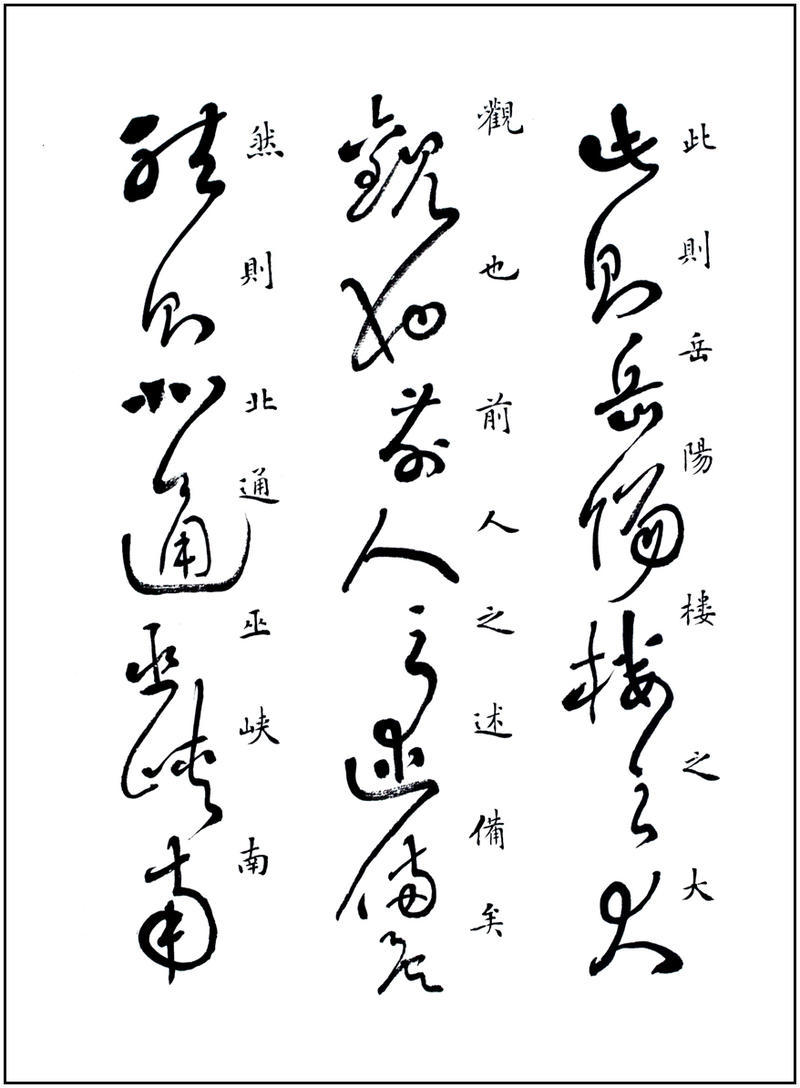 此則岳陽樓之大
觀也前人之述備矣
然則北通巫峽南